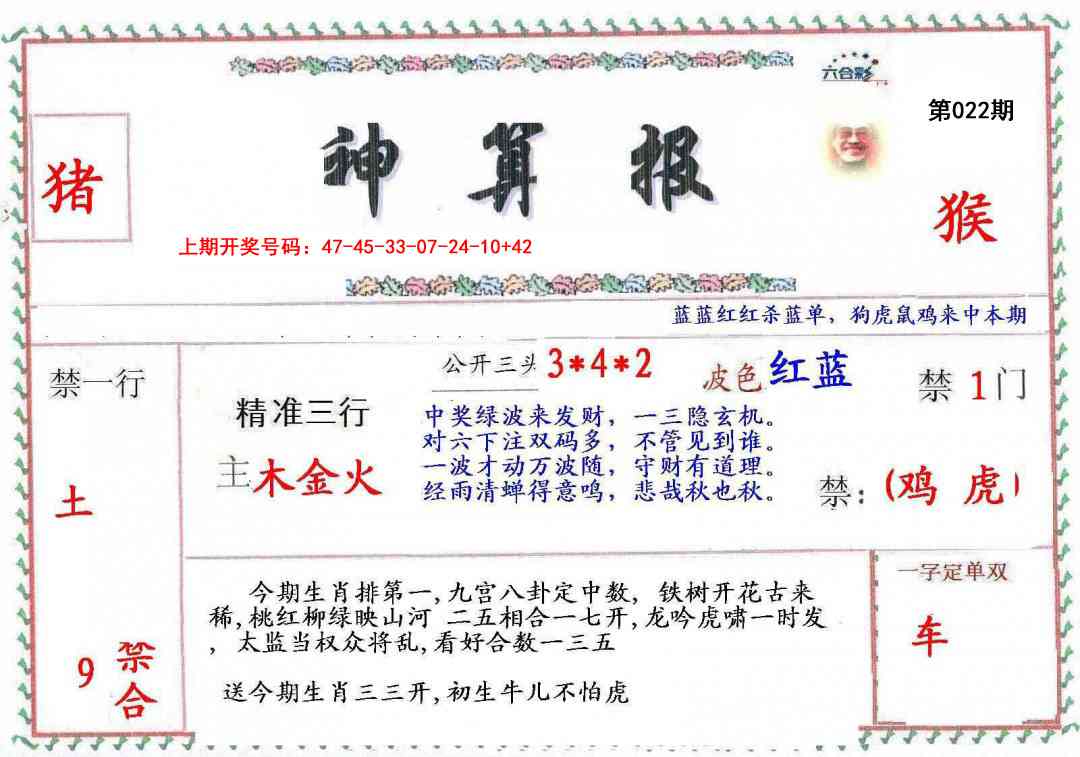 六合彩
第022期
神算报
猪
猴
上期开奖号码：47-45-33-07-24-10+42
蓝蓝红红杀蓝单，狗虎鼠鸡来中本期
禁一行
土
9 禁合
精准三行
主木金火
公开三头 3*4*2
波色 红蓝
中奖绿波来发财，一三隐玄机。
对六下注双码多，不管见到谁。
一波才动万波随，守财有道理。
经雨清蝉得意鸣，悲哉秋也秋。
禁 1 门
禁：(鸡 虎)
今期生肖排第一,九宫八卦定中数，铁树开花古来
稀,桃红柳绿映山河 二五相合一七开,龙吟虎啸一时发
，太监当权众将乱,看好合数一三五
送今期生肖三三开,初生牛儿不怕虎
一字定单双
车